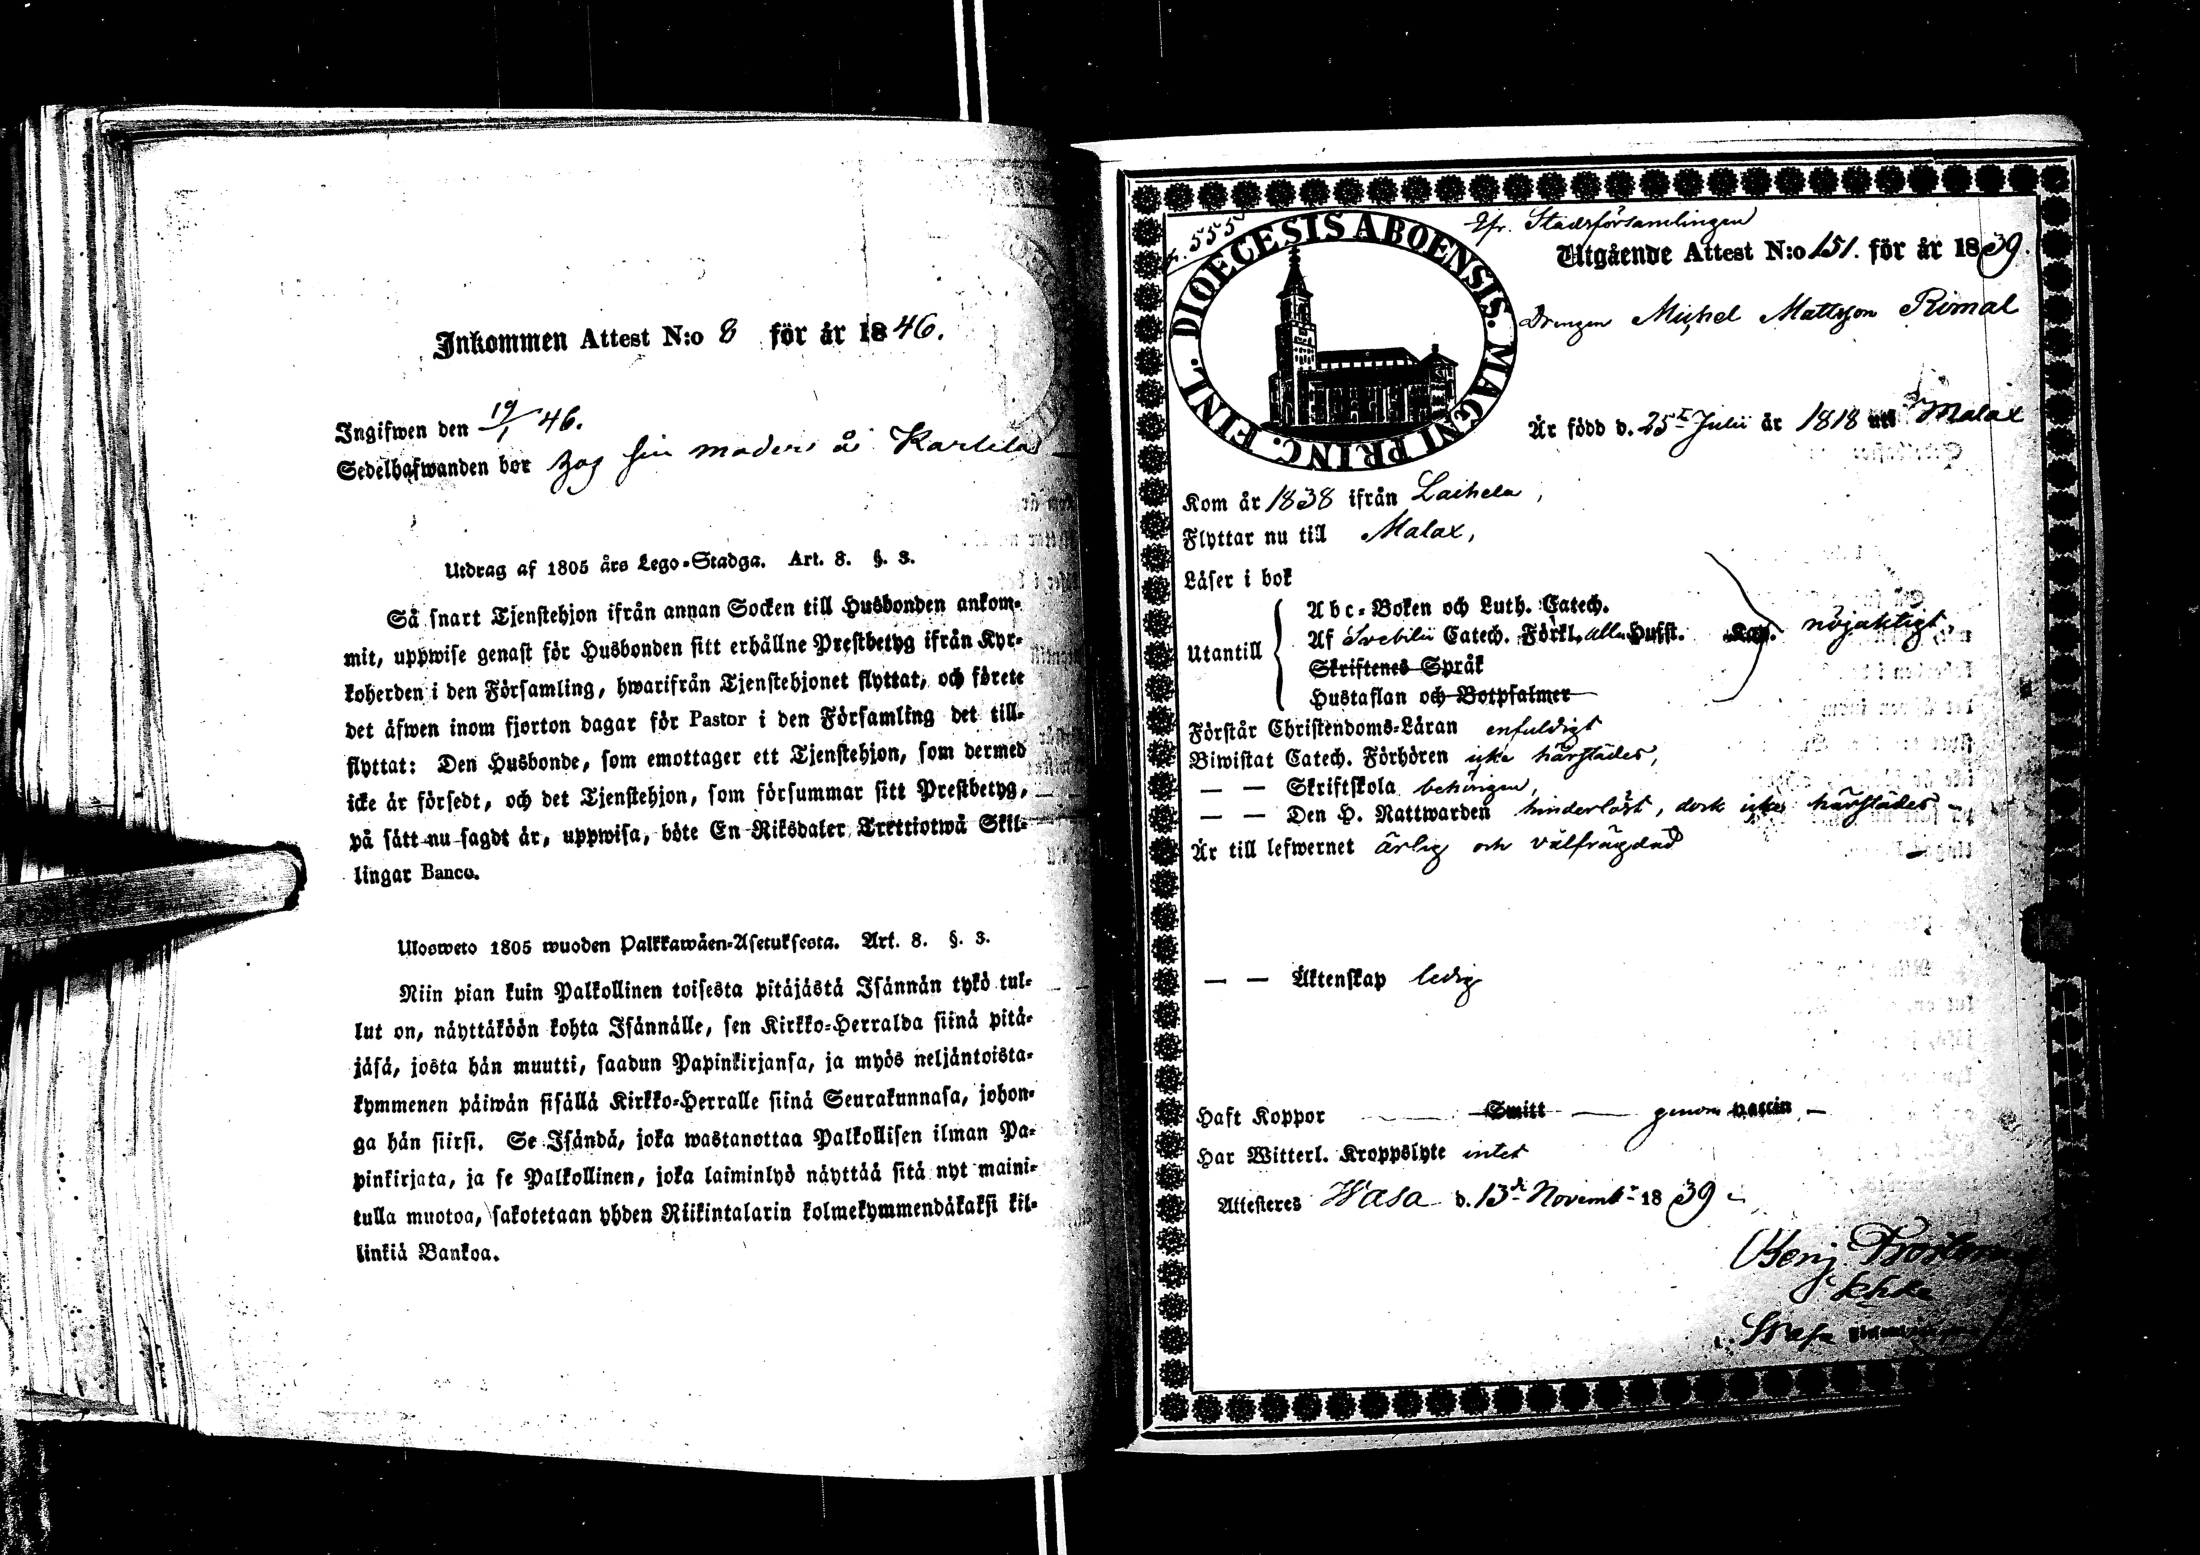 Inkommen Attest N:o 8 för år 1846.
Ingifwen den 19/1 46.
Sedelhafwanden bor hos sin moder å
Utdrag af 1805 års Lego-Stadga. Art. 8. §. 3.
Så snart Tjenstehjon ifrån annan Socken till Husbonden ankom-
mit, uppwise genast för Husbonden sitt erhållne Prestbetyg ifrån Kyr-
koherden i den Församling, hwarifrån Tjenstehjonet flyttat, och förete
det äfwen inom fjorton dagar för Pastor i den Församling det till-
flyttat: Den Husbonde, som emottager ett Tjenstehjon, som dermed
icke är försedt, och det Tjenstehjon, som försummar sitt Prestbetyg,
på sätt nu sagdt är, uppwisa, böte En Riksdaler Trettiotwå Skil-
lingar Banco.
Ulosweto 1805 wuoden Palkkawäen-Asetuksesta. Art. 8. §. 3.
Niin pian kuin Palkollinen toisesta pitäjästä Isännän tykö tul-
lut on, näyttäköön kohta Isännälle, sen Kirkko-Herralda siinä pitä-
jäsä, josta hän muutti, saadun Papinkirjansa, ja myös neljäntoista-
kymmenen päiwän sisällä Kirkko-Herralle siinä Seurakunnasa, johon-
ga hän siirsi. Se Isändä, joka wastanottaa Palkollisen ilman Pa-
pinkirjata, ja se Palkollinen, joka laiminlyö näyttää sitä nyt maini-
tulla muotoa, sakotetaan yhden Riikintalarin kolmekymmendäkaksi kil-
linkiä Bankoa.
555
DIOECESIS ABOENSIS. MAGNI PRINC. FINL.
Ifr. Stadsförsamlingen
Utgående Attest N:o 151. för år 1839.
Drengen Michel Mattsson Rimal
Är född d. 25 Julii år 1818 uti Malax
Kom år 1838 ifrån Laihela,
Flyttar nu till Malax,
Läser i bok
Utantill
Abc-Boken och Luth. Catech.
Af Svebilii Catech. Förkl. alla Hufst. Kap. nöjaktigt,
Skriftenes Språk
Hustaflan och Botpsalmer
Förstår Christendoms-Läran enfaldigt
Biwistat Catech. Förhören icke härstädes,
— — Skriftskola behörigen,
— — Den H. Nattwarden hinderlöst, dock icke härstädes —
Är till lefwernet ärlig och välfrägdad —
— — Äktenskap ledig
Haft Koppor — Smitt — genom vaccin, —
Har Witterl. Kroppslyte intet
Attesteres Wasa d. 13 Novemb 1839
Benj.